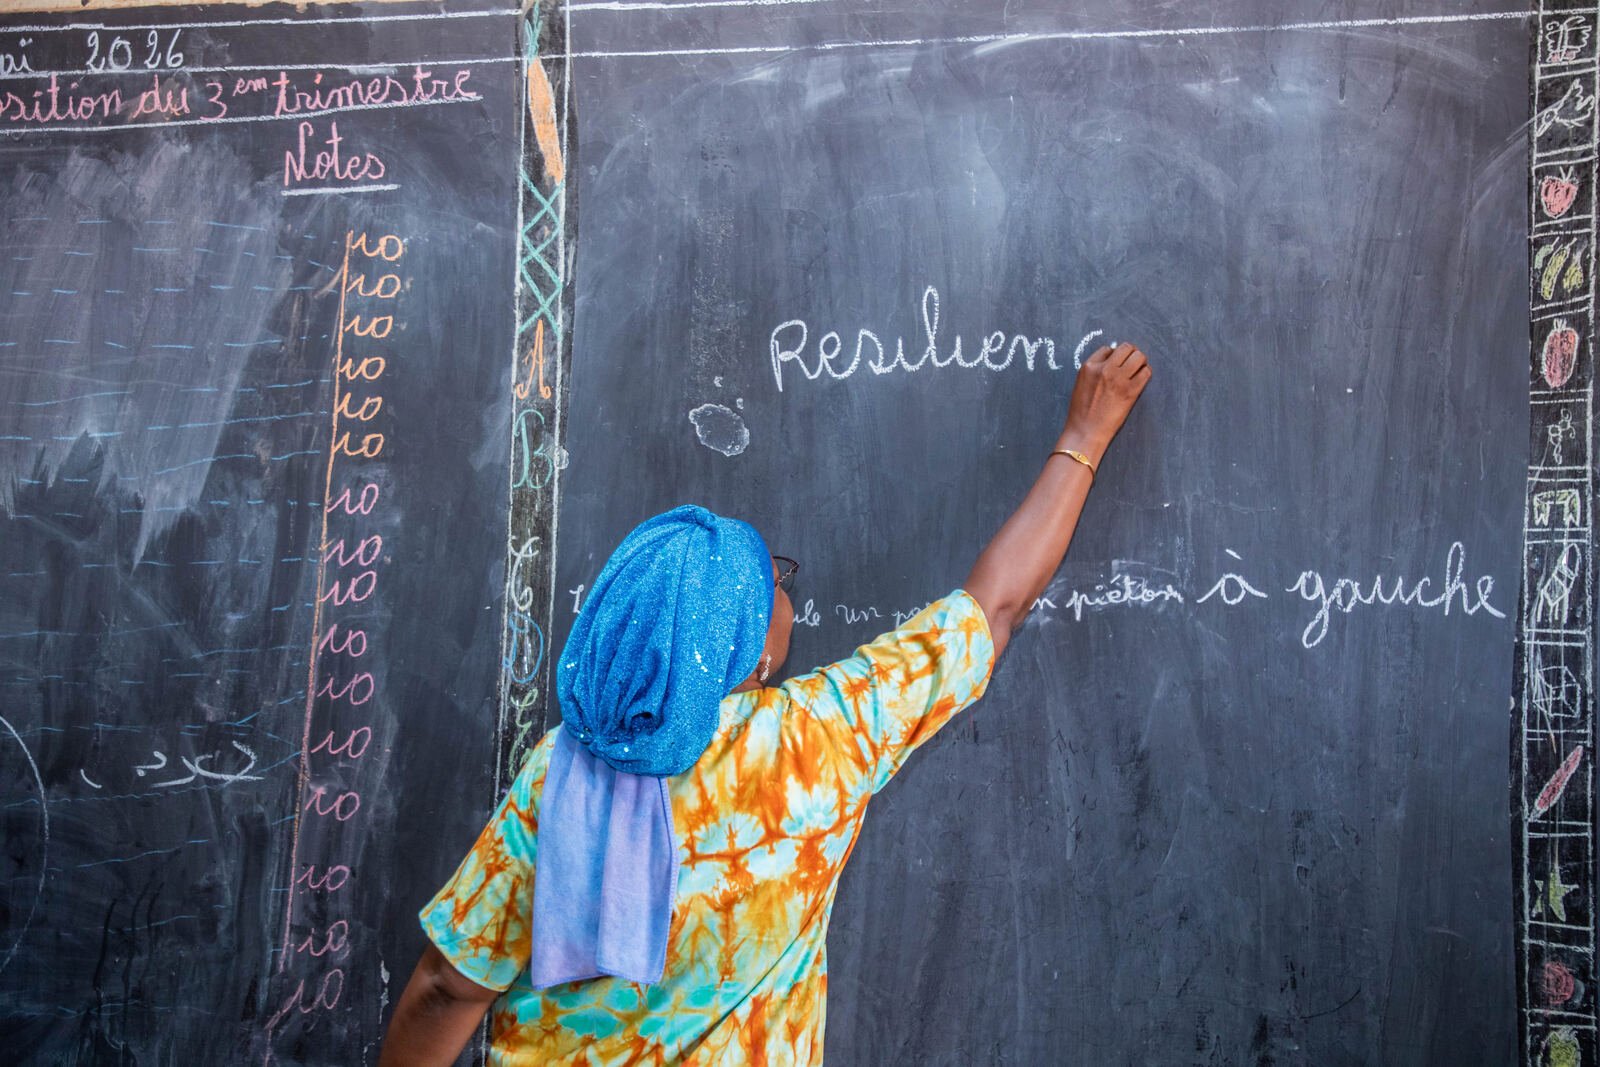 aï 2026
osition du 3em trimestre
Notes
10
10
10
10
10
10
10
10
10
10
10
10
10
10
10
10
A
B
C
D
Resilienc
un piéton à gauche